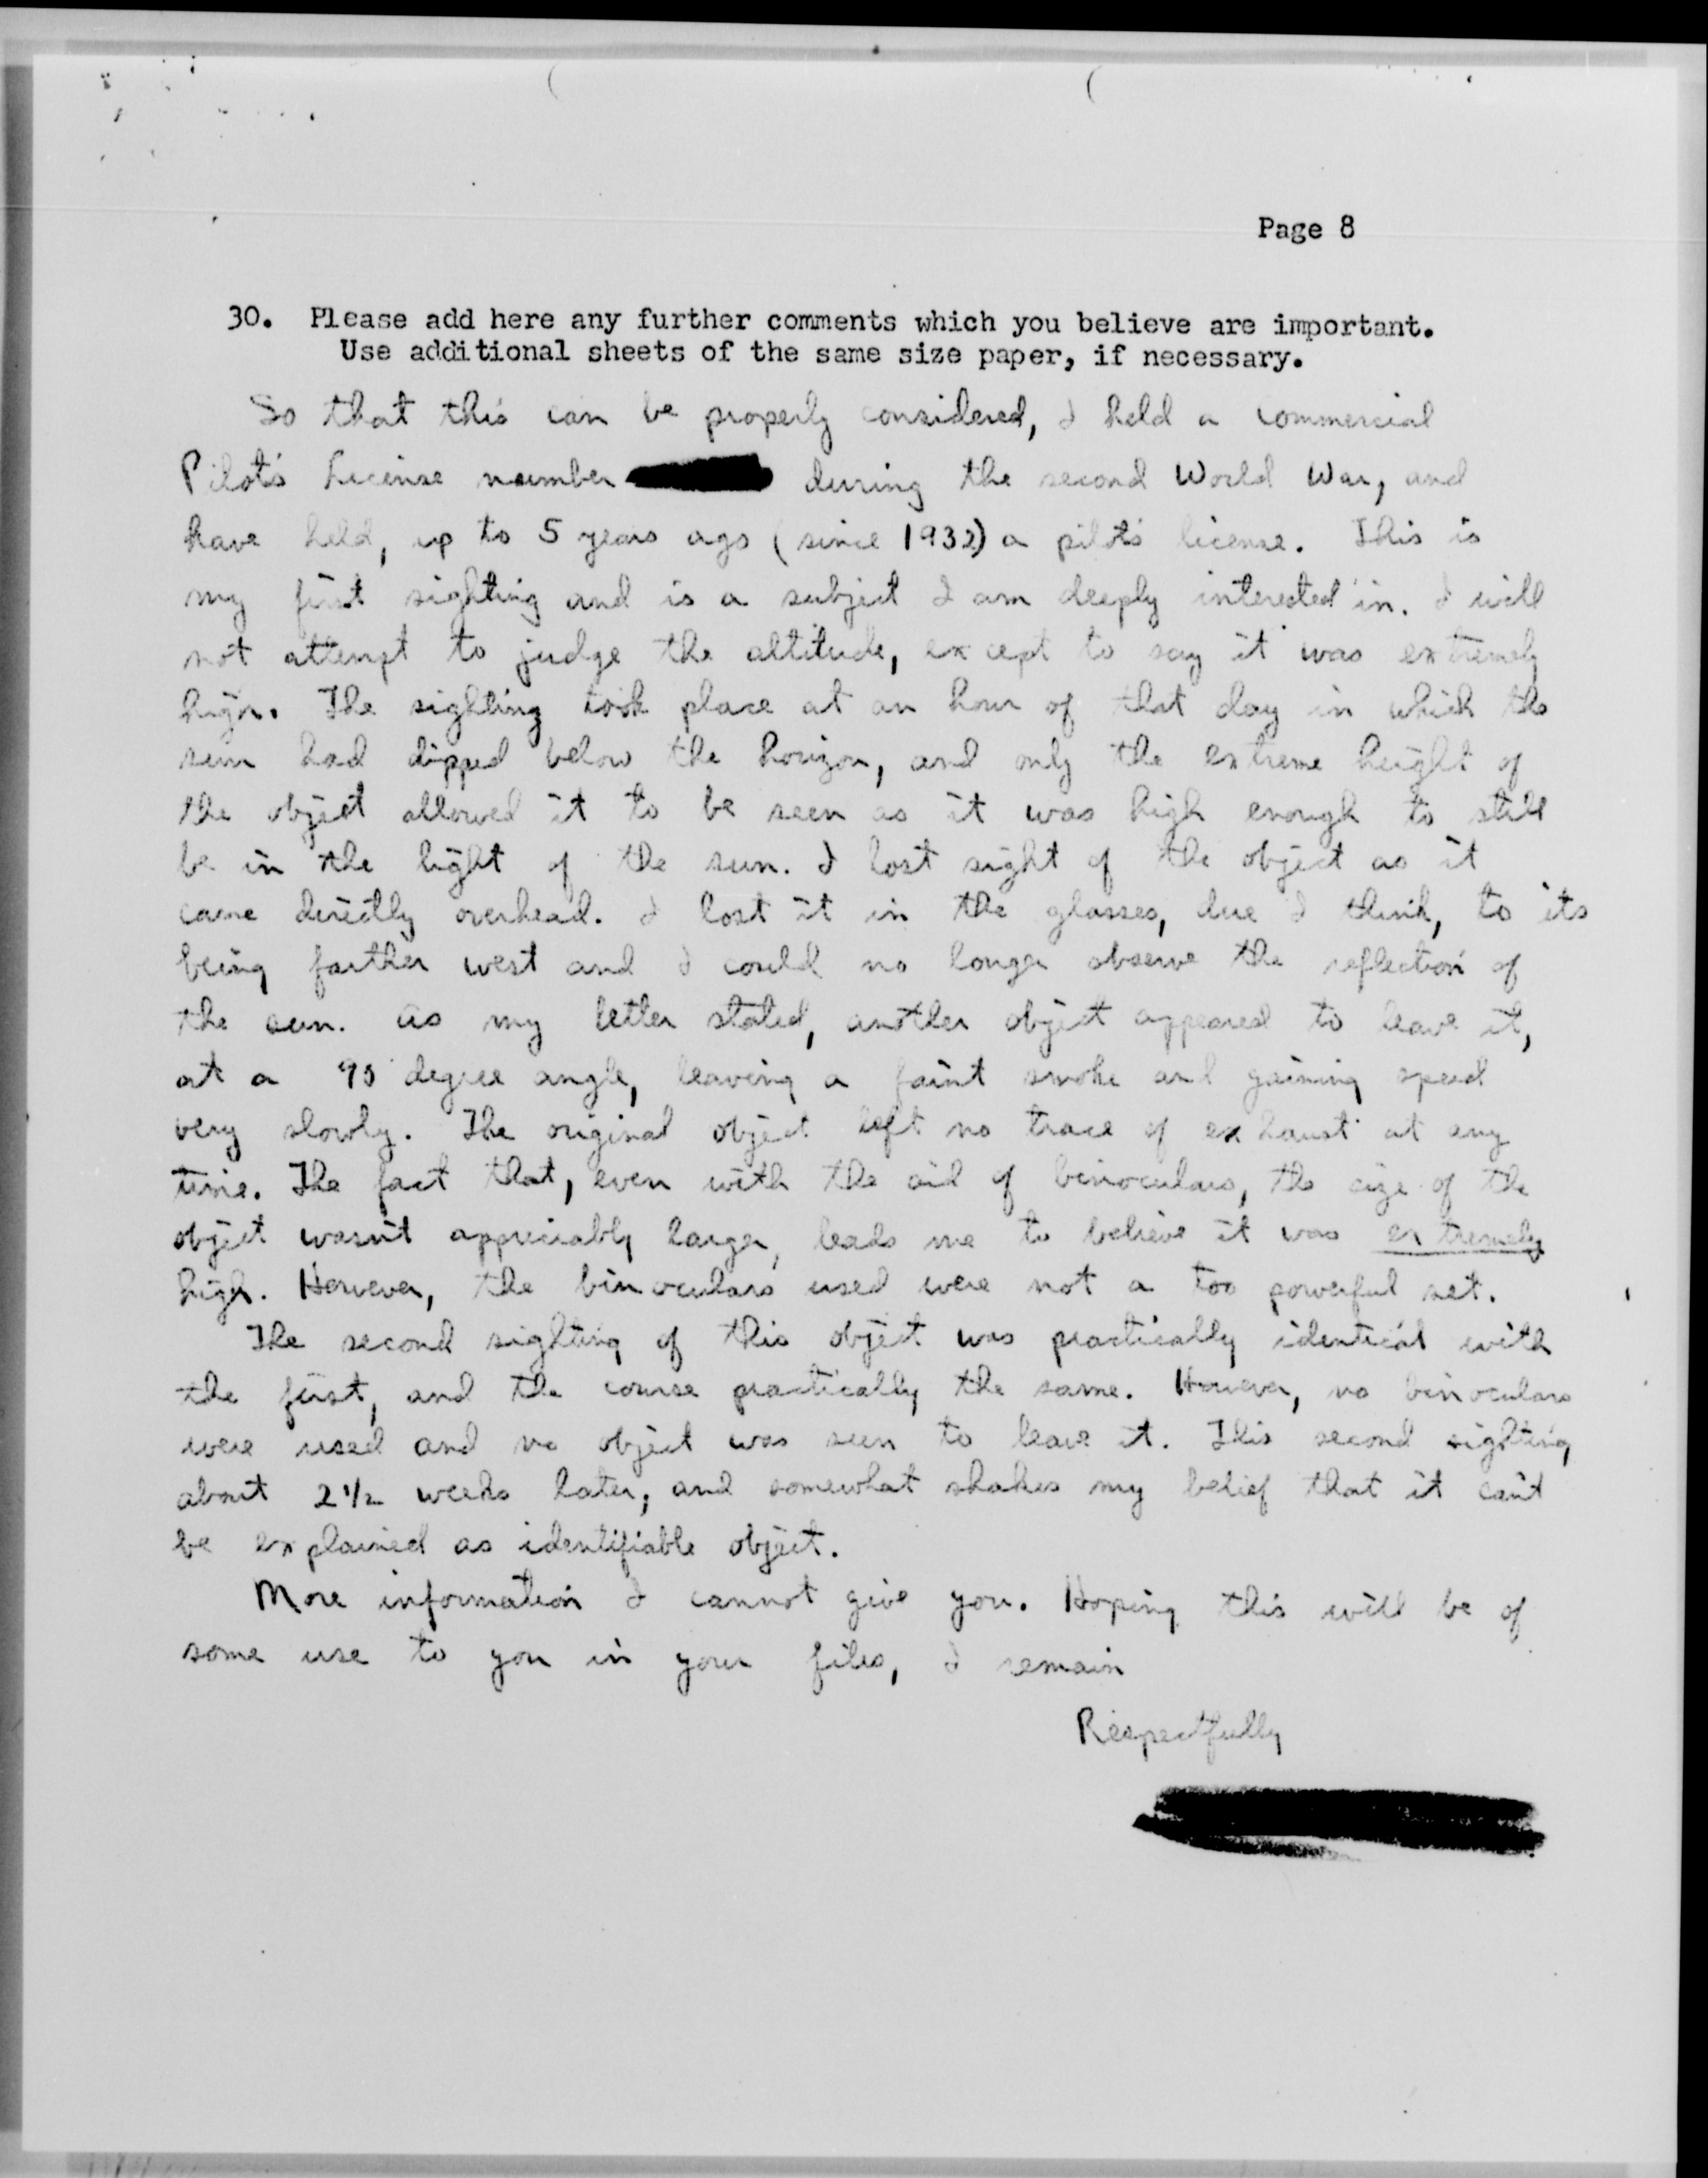 Page 8
30. Please add here any further comments which you believe are important.
Use additional sheets of the same size paper, if necessary.
So that this can be properly considered, I held a commercial
Pilot's License number during the second World War, and
have held, up to 5 years ago (since 1932) a pilot's license. This is
my first sighting and is a subject I am deeply interested in. I will
not attempt to judge the altitude, except to say it was extremely
high. The sighting took place at an hour of that day in which the
sun had dipped below the horizon, and only the extreme height of
the object allowed it to be seen as it was high enough to still
be in the light of the sun. I lost sight of the object as it
came directly overhead. I lost it in the glasses, due I think, to its
being farther west and I could no longer observe the reflection of
the sun. As my letter stated, another object appeared to leave it,
at a 90 degree angle, leaving a faint smoke and gaining speed
very slowly. The original object left no trace of exhaust at any
time. The fact that, even with the aid of binoculars, the size of the
object wasn't appreciably larger, leads me to believe it was extremely
high. However, the binoculars used were not a too powerful set.
The second sighting of this object was practically identical with
the first, and the course practically the same. However, no binoculars
were used and no object was seen to leave it. This second sighting
about 2 1/2 weeks later, and somewhat shakes my belief that it can't
be explained as identifiable object.
More information I cannot give you. Hoping this will be of
some use to you in your files, I remain
Respectfully